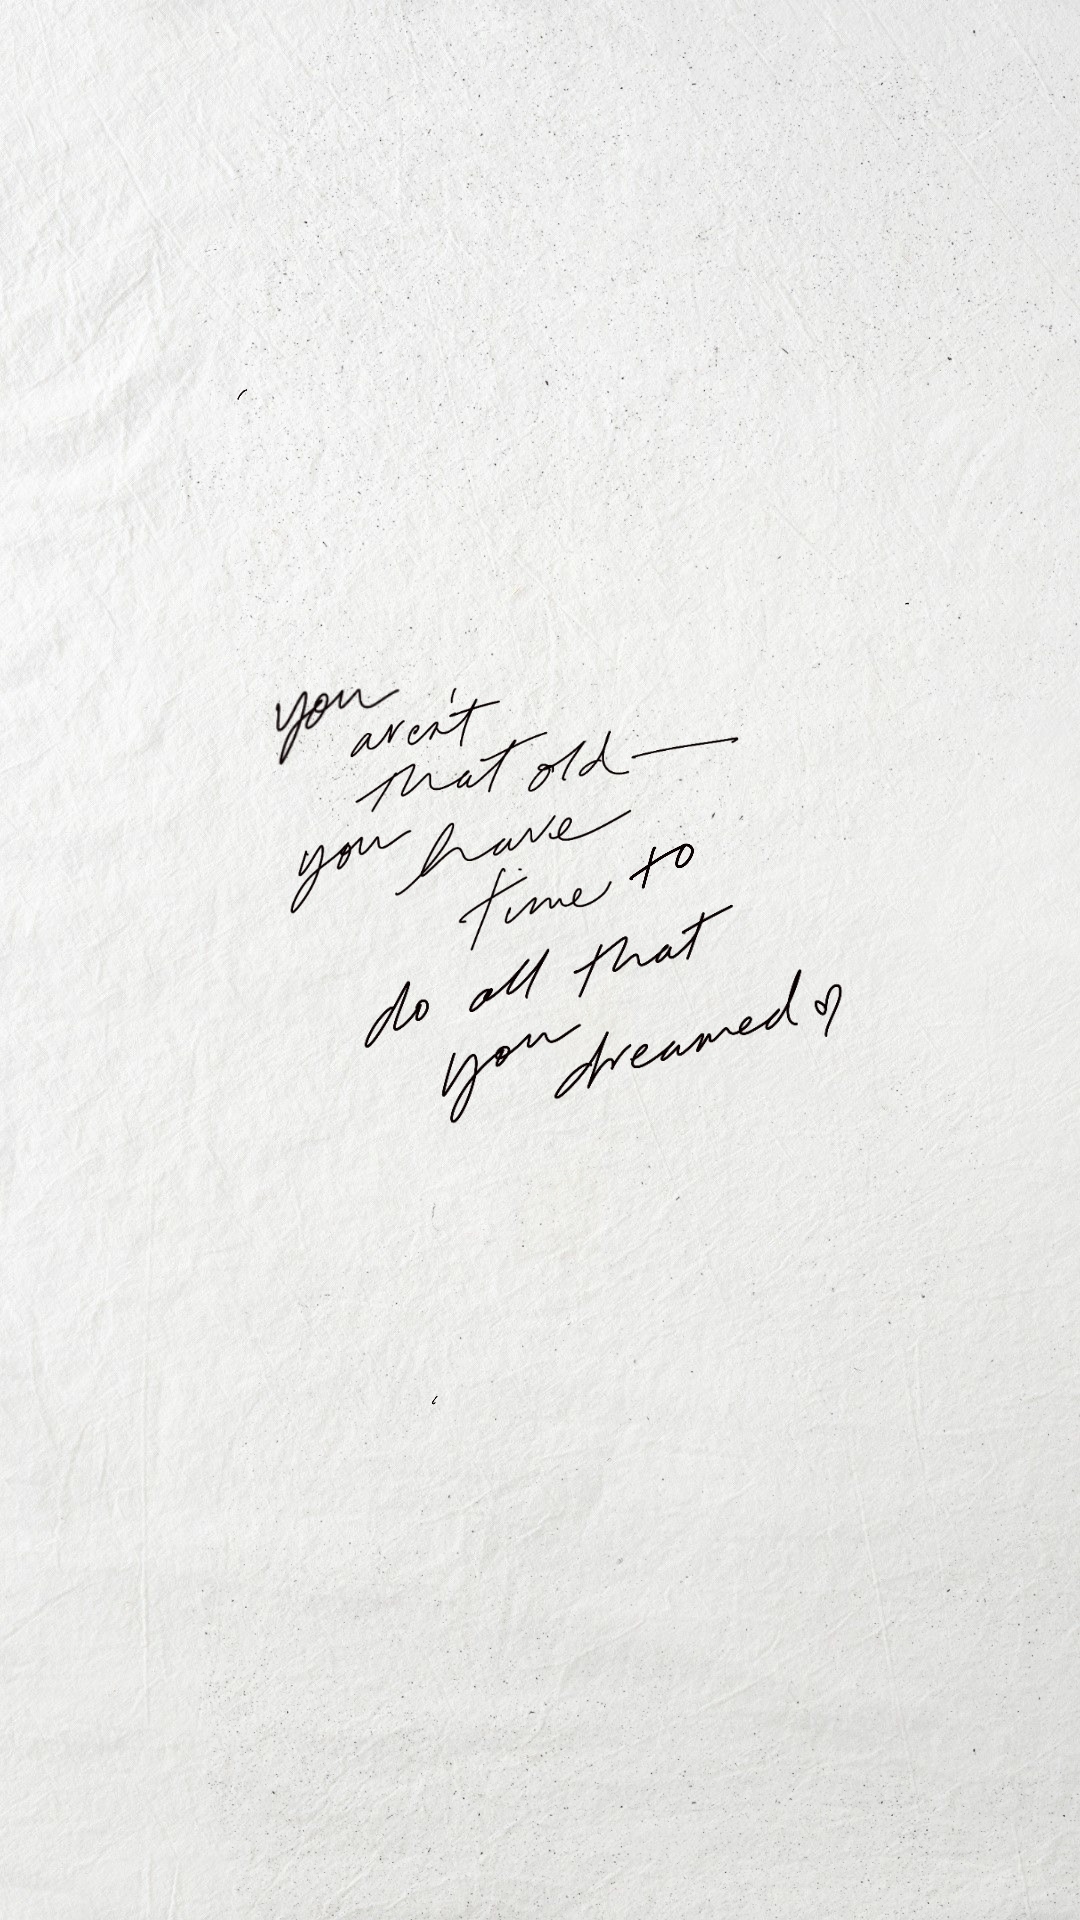 you
aren't
that old—
you have
time to
do all that
you dreamed ♡